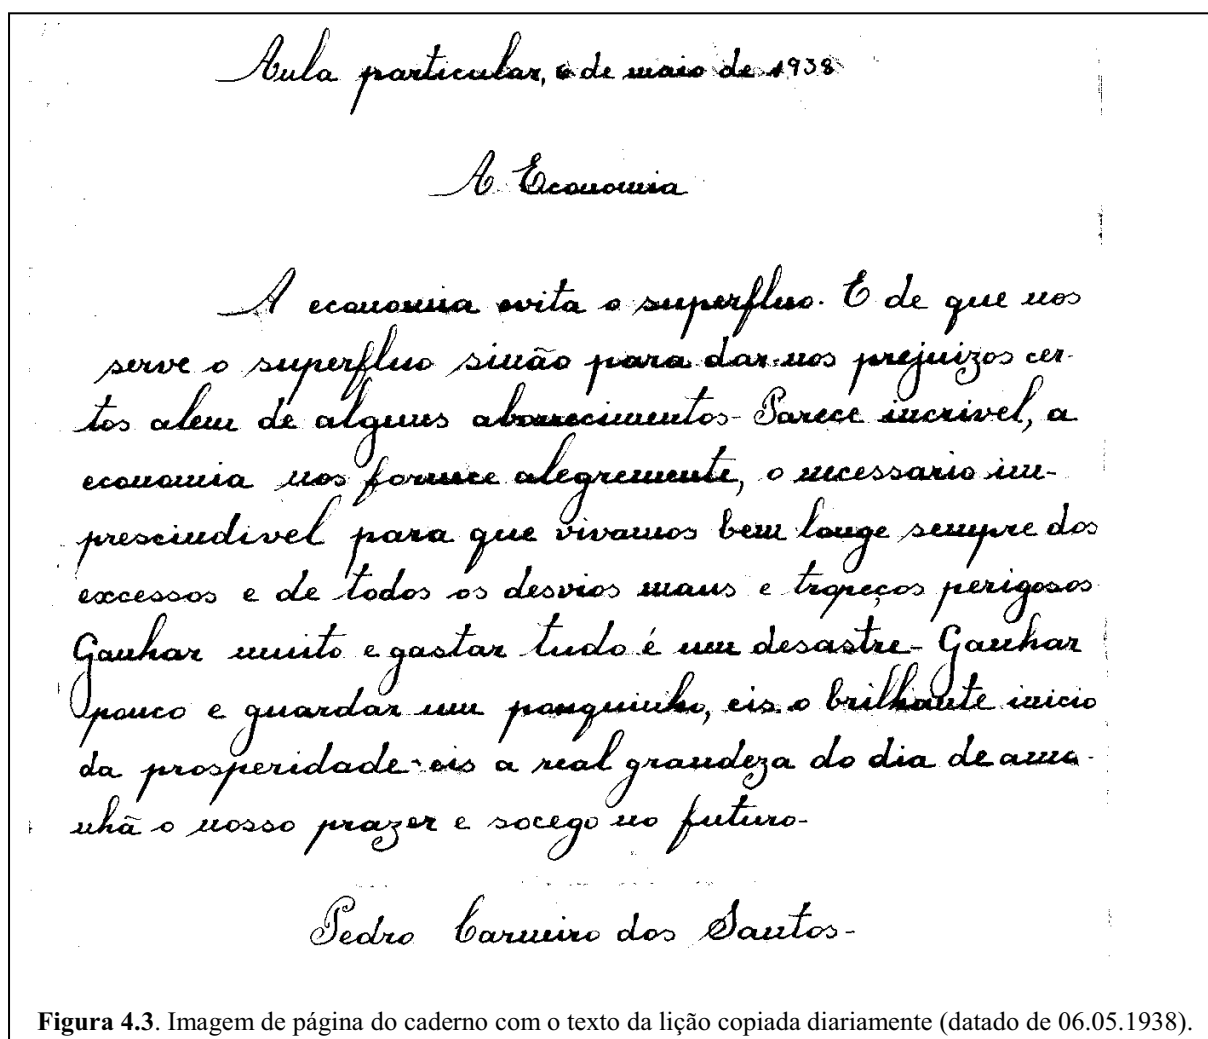 Aula particular, 6 de maio de 1938
A Economia
A economia evita o superfluo. E de que nos
serve o superfluo sinão para dar-nos prejuizos cer-
tos alem de alguns aborrecimentos- Parece incrivel, a
economia nos fornece alegremente, o necessario im-
prescindivel para que vivamos bem longe sempre dos
excessos e de todos os desvios maus e tropeços perigosos
Ganhar muito e gastar tudo é um desastre- Ganhar
pouco e guardar um pouquinho, eis o brilhante inicio
da prosperidade- eis a real grandeza do dia de ama-
nhã o nosso prazer e socego no futuro-
Pedro Carneiro dos Santos-
Figura 4.3. Imagem de página do caderno com o texto da lição copiada diariamente (datado de 06.05.1938).